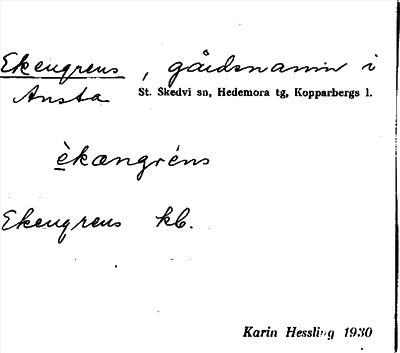 Ekengrens, gårdsnamn i
Ansta St. Skedvi sn, Hedemora tg, Kopparbergs l.
èkængréns
Ekengrens kb.
Karin Hessling 1930